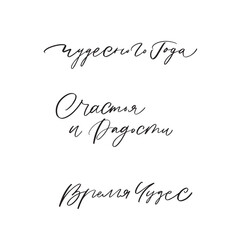 Чудесного Года
Счастья
и Радости
Время Чудес